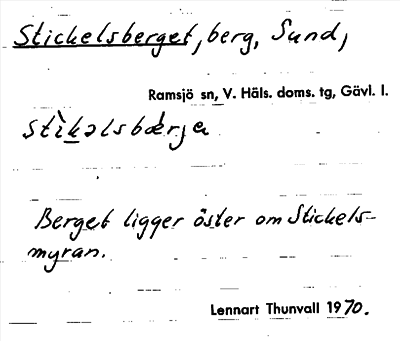 Stickelsberget, berg, Sund,
Ramsjö sn, V. Häls. doms. tg, Gävl. l.
stìkəlsbær̀ja
Berget ligger öster om Stickels-
myran.
Lennart Thunvall 1970.